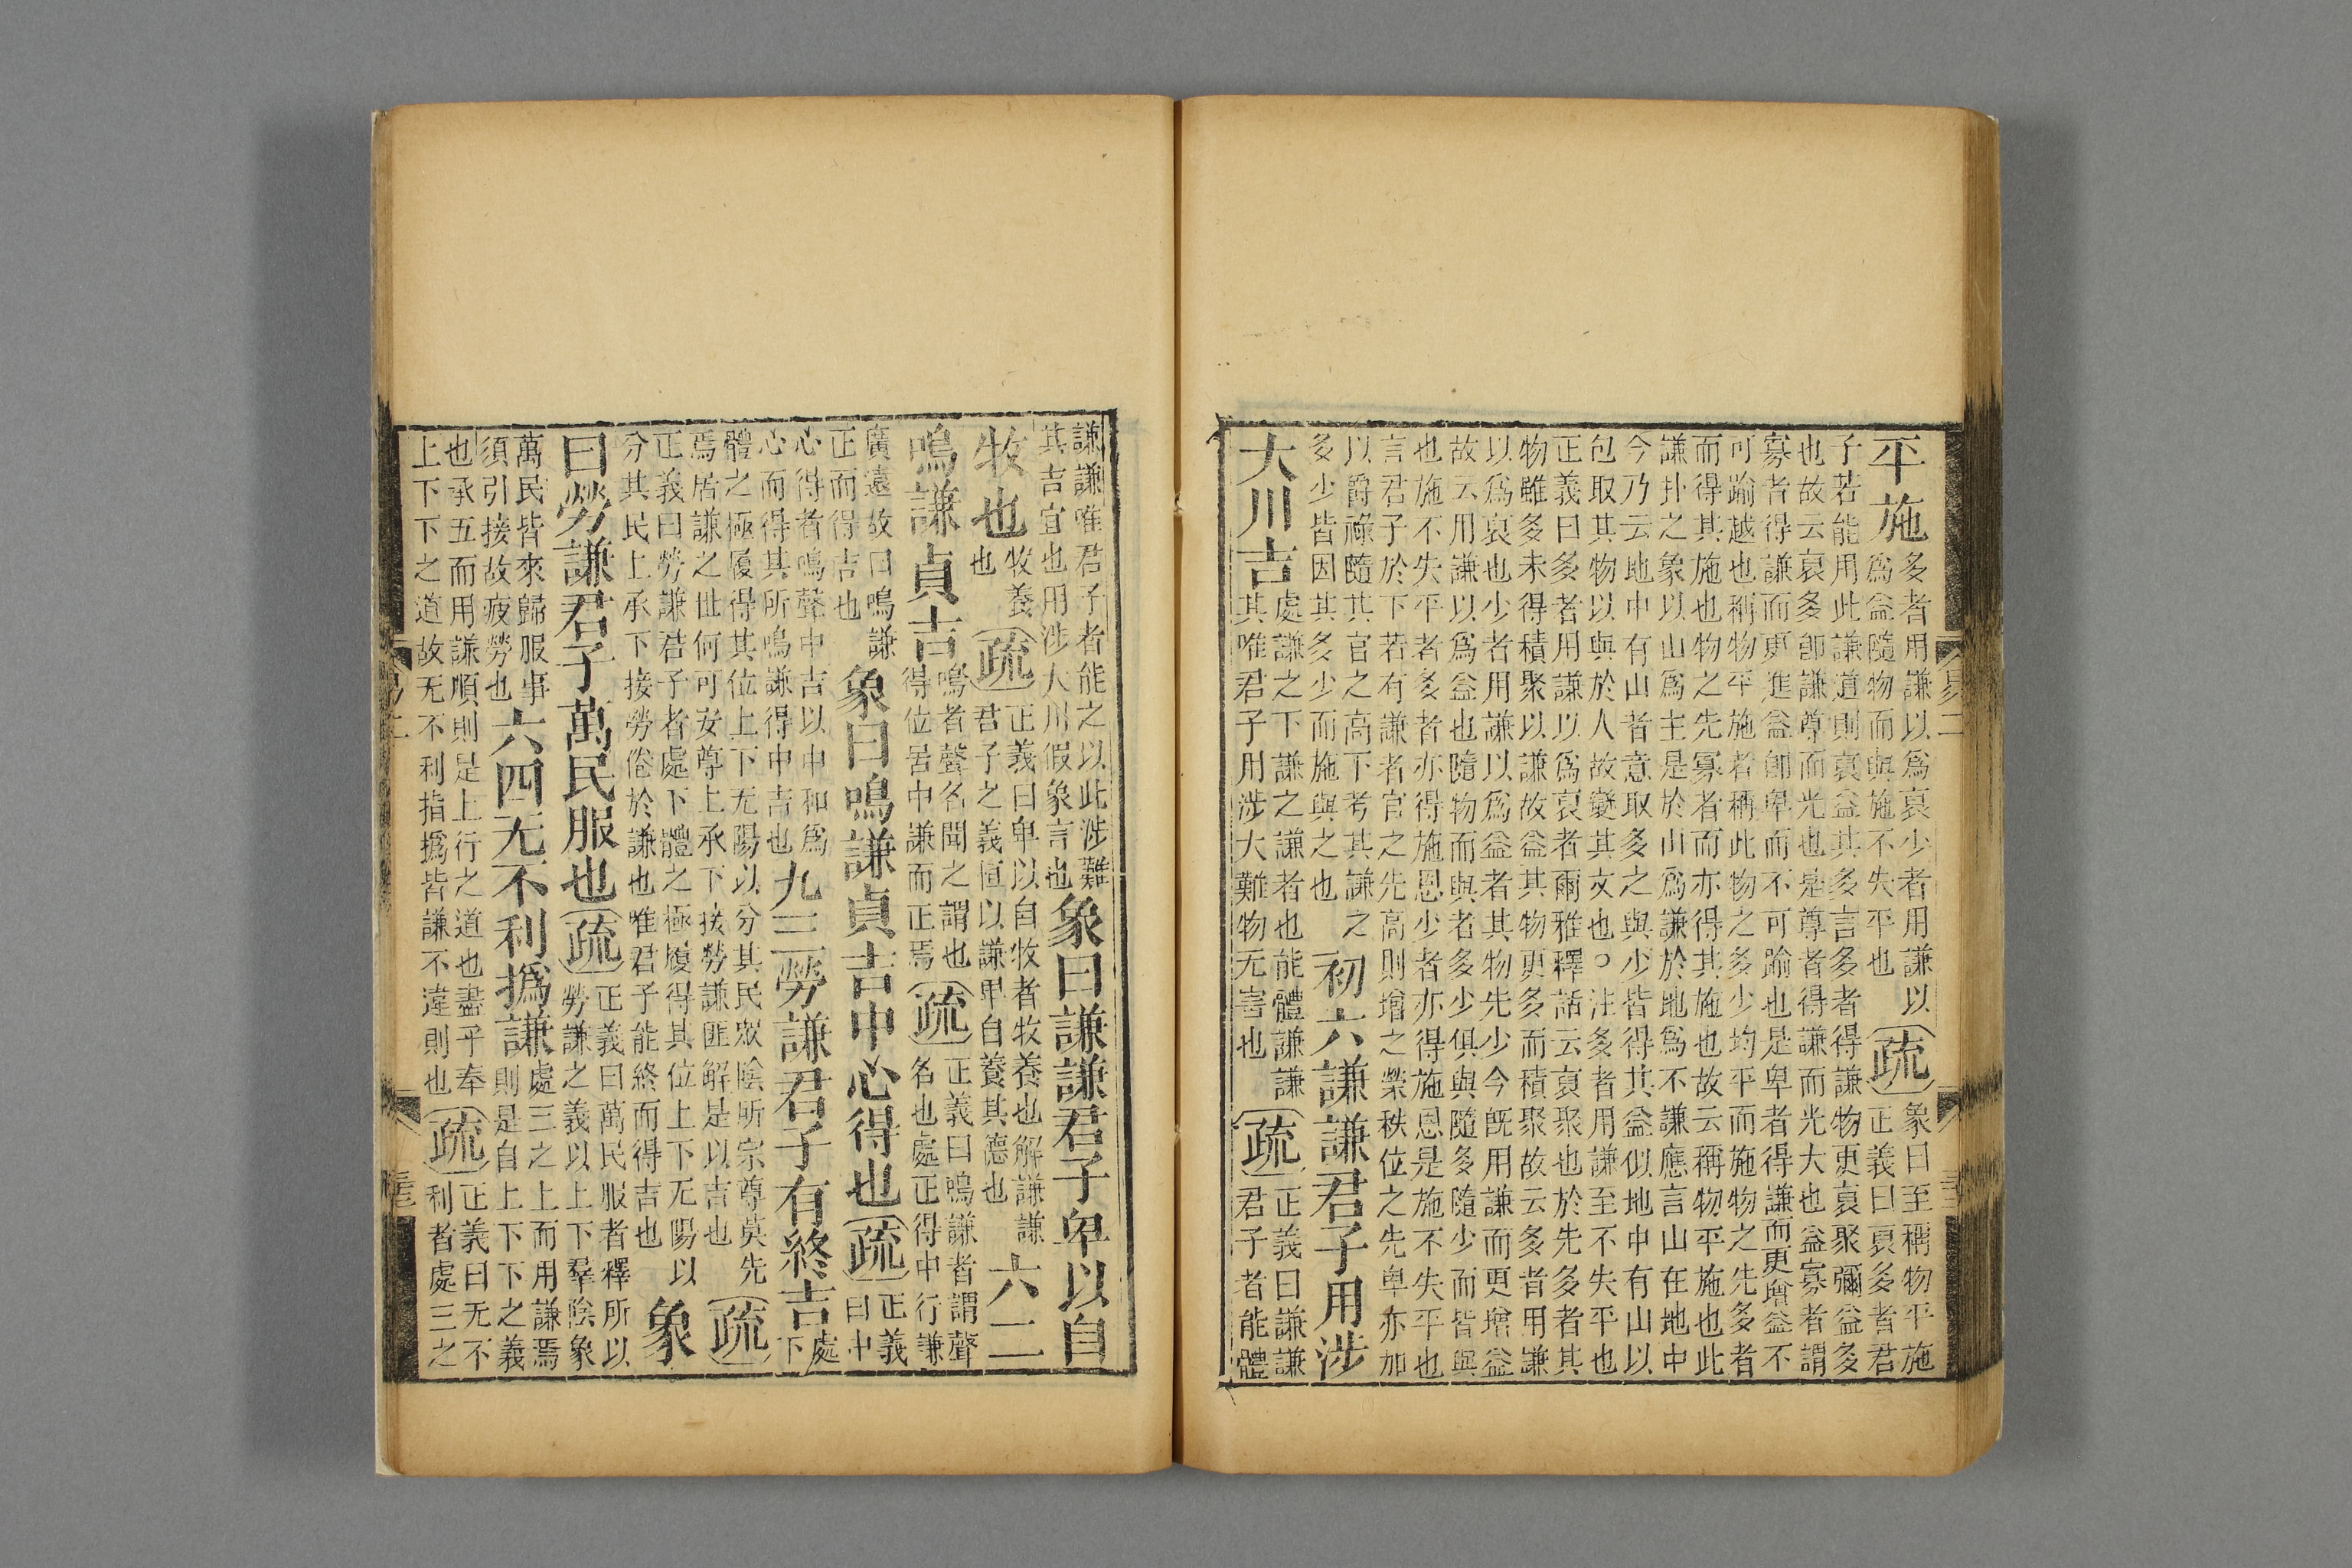 平施
多者用謙以爲裒少者用謙以
爲益隨物而與施不失平也
疏
象曰至稱物平施
正義曰裒多者君
子若能用此謙道則裒益其多言多者得謙物更裒聚彌益多
也故云裒多卽謙尊而光也是尊者得謙而光大也益寡者謂
寡者得謙而更進益卽卑而不可踰也是卑者得謙而更增益不
可踰越也稱物平施者稱此物之多少均平而施物之先多者
而得其施也物之先寡者而亦得其施也故云稱物平施也此
謙卦之象以山爲主是於山爲謙於地爲不謙應言山在地中
今乃云地中有山者意取多之與少皆得其益似地中有山以
包取其物以與於人故變其文也○注多者用謙至不失平也
正義曰多者用謙以爲裒者爾雅釋詁云裒聚也於先多者其
物雖多未得積聚以謙故益其物更多而積聚故云多者用謙
以爲裒也少者用謙以爲益者其物先少今旣用謙而更增益
故云用謙以爲益也隨物而與者多少俱與隨多隨少而皆與
也施不失平者多者亦得施恩少者亦得施恩是施不失平也
言君子於下若有謙者官之先高則增之榮秩位之先卑亦加
以爵祿隨其官之高下考其謙之
多少皆因其多少而施與之也
初六謙謙君子用涉
大川吉
處謙之下謙之謙者也能體謙謙
其唯君子用涉大難物无害也
疏
正義曰謙謙
君子者能體
謙謙唯君子者能之以此涉難
其吉宜也用涉大川假象言也
象曰謙謙君子卑以自
牧也
牧養
也
疏
正義曰卑以自牧者牧養也解謙謙
君子之義恒以謙卑自養其德也
六二
鳴謙貞吉
鳴者聲名聞之謂也
得位居中謙而正焉
疏
正義曰鳴謙者謂聲
名也處正得中行謙
廣遠故曰鳴謙
正而得吉也
象曰鳴謙貞吉中心得也
疏
正義
曰中
心得者鳴聲中吉以中和爲
心而得其所鳴謙得中吉也
九三勞謙君子有終吉
處
下
體之極履得其位上下无陽以分其民眾陰所宗尊莫先
焉居謙之世何可安尊上承下接勞謙匪解是以吉也
疏
正義曰勞謙君子者處下體之極履得其位上下无陽以
分其民上承下接勞倦於謙也唯君子能終而得吉也
象
曰勞謙君子萬民服也
疏
正義曰萬民服者釋所以
勞謙之義以上下羣陰象
萬民皆來歸服事
須引接故疲勞也
六四无不利撝謙
處三之上而用謙焉
則是自上下下之義
也承五而用謙順則是上行之道也盡乎奉
上下下之道故无不利指撝皆謙不違則也
疏
正義曰无不
利者處三之